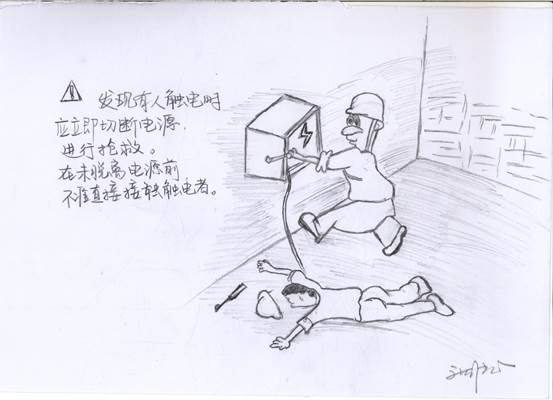 发现有人触电时
应立即切断电源,
进行抢救。
在未脱离电源前
不准直接接触触电者。